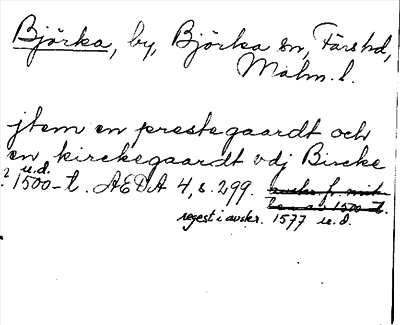 Björka, by, Björka sn, Färs hd,
Malm. l.
jtem en prestegaardt och
en kirckegaardt vdj Bircke
u.d.
? 1500-t. AEDA 4, s. 299.
regest i avskr. 1577 u.d.